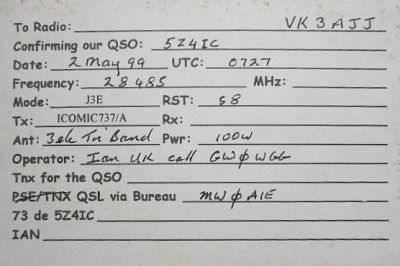 To Radio: VK3AJJ
Confirming our QSO: 5Z4IC
Date: 2 May 99 UTC: 0727
Frequency: 28485 MHz:
Mode: J3E RST: 58
Tx: ICOMIC737/A Rx:
Ant: 3ele Tri Band Pwr: 100W
Operator: Ian UK call GWØWGG
Tnx for the QSO
PSE/TNX QSL via Bureau MWØAIE
73 de 5Z4IC
IAN